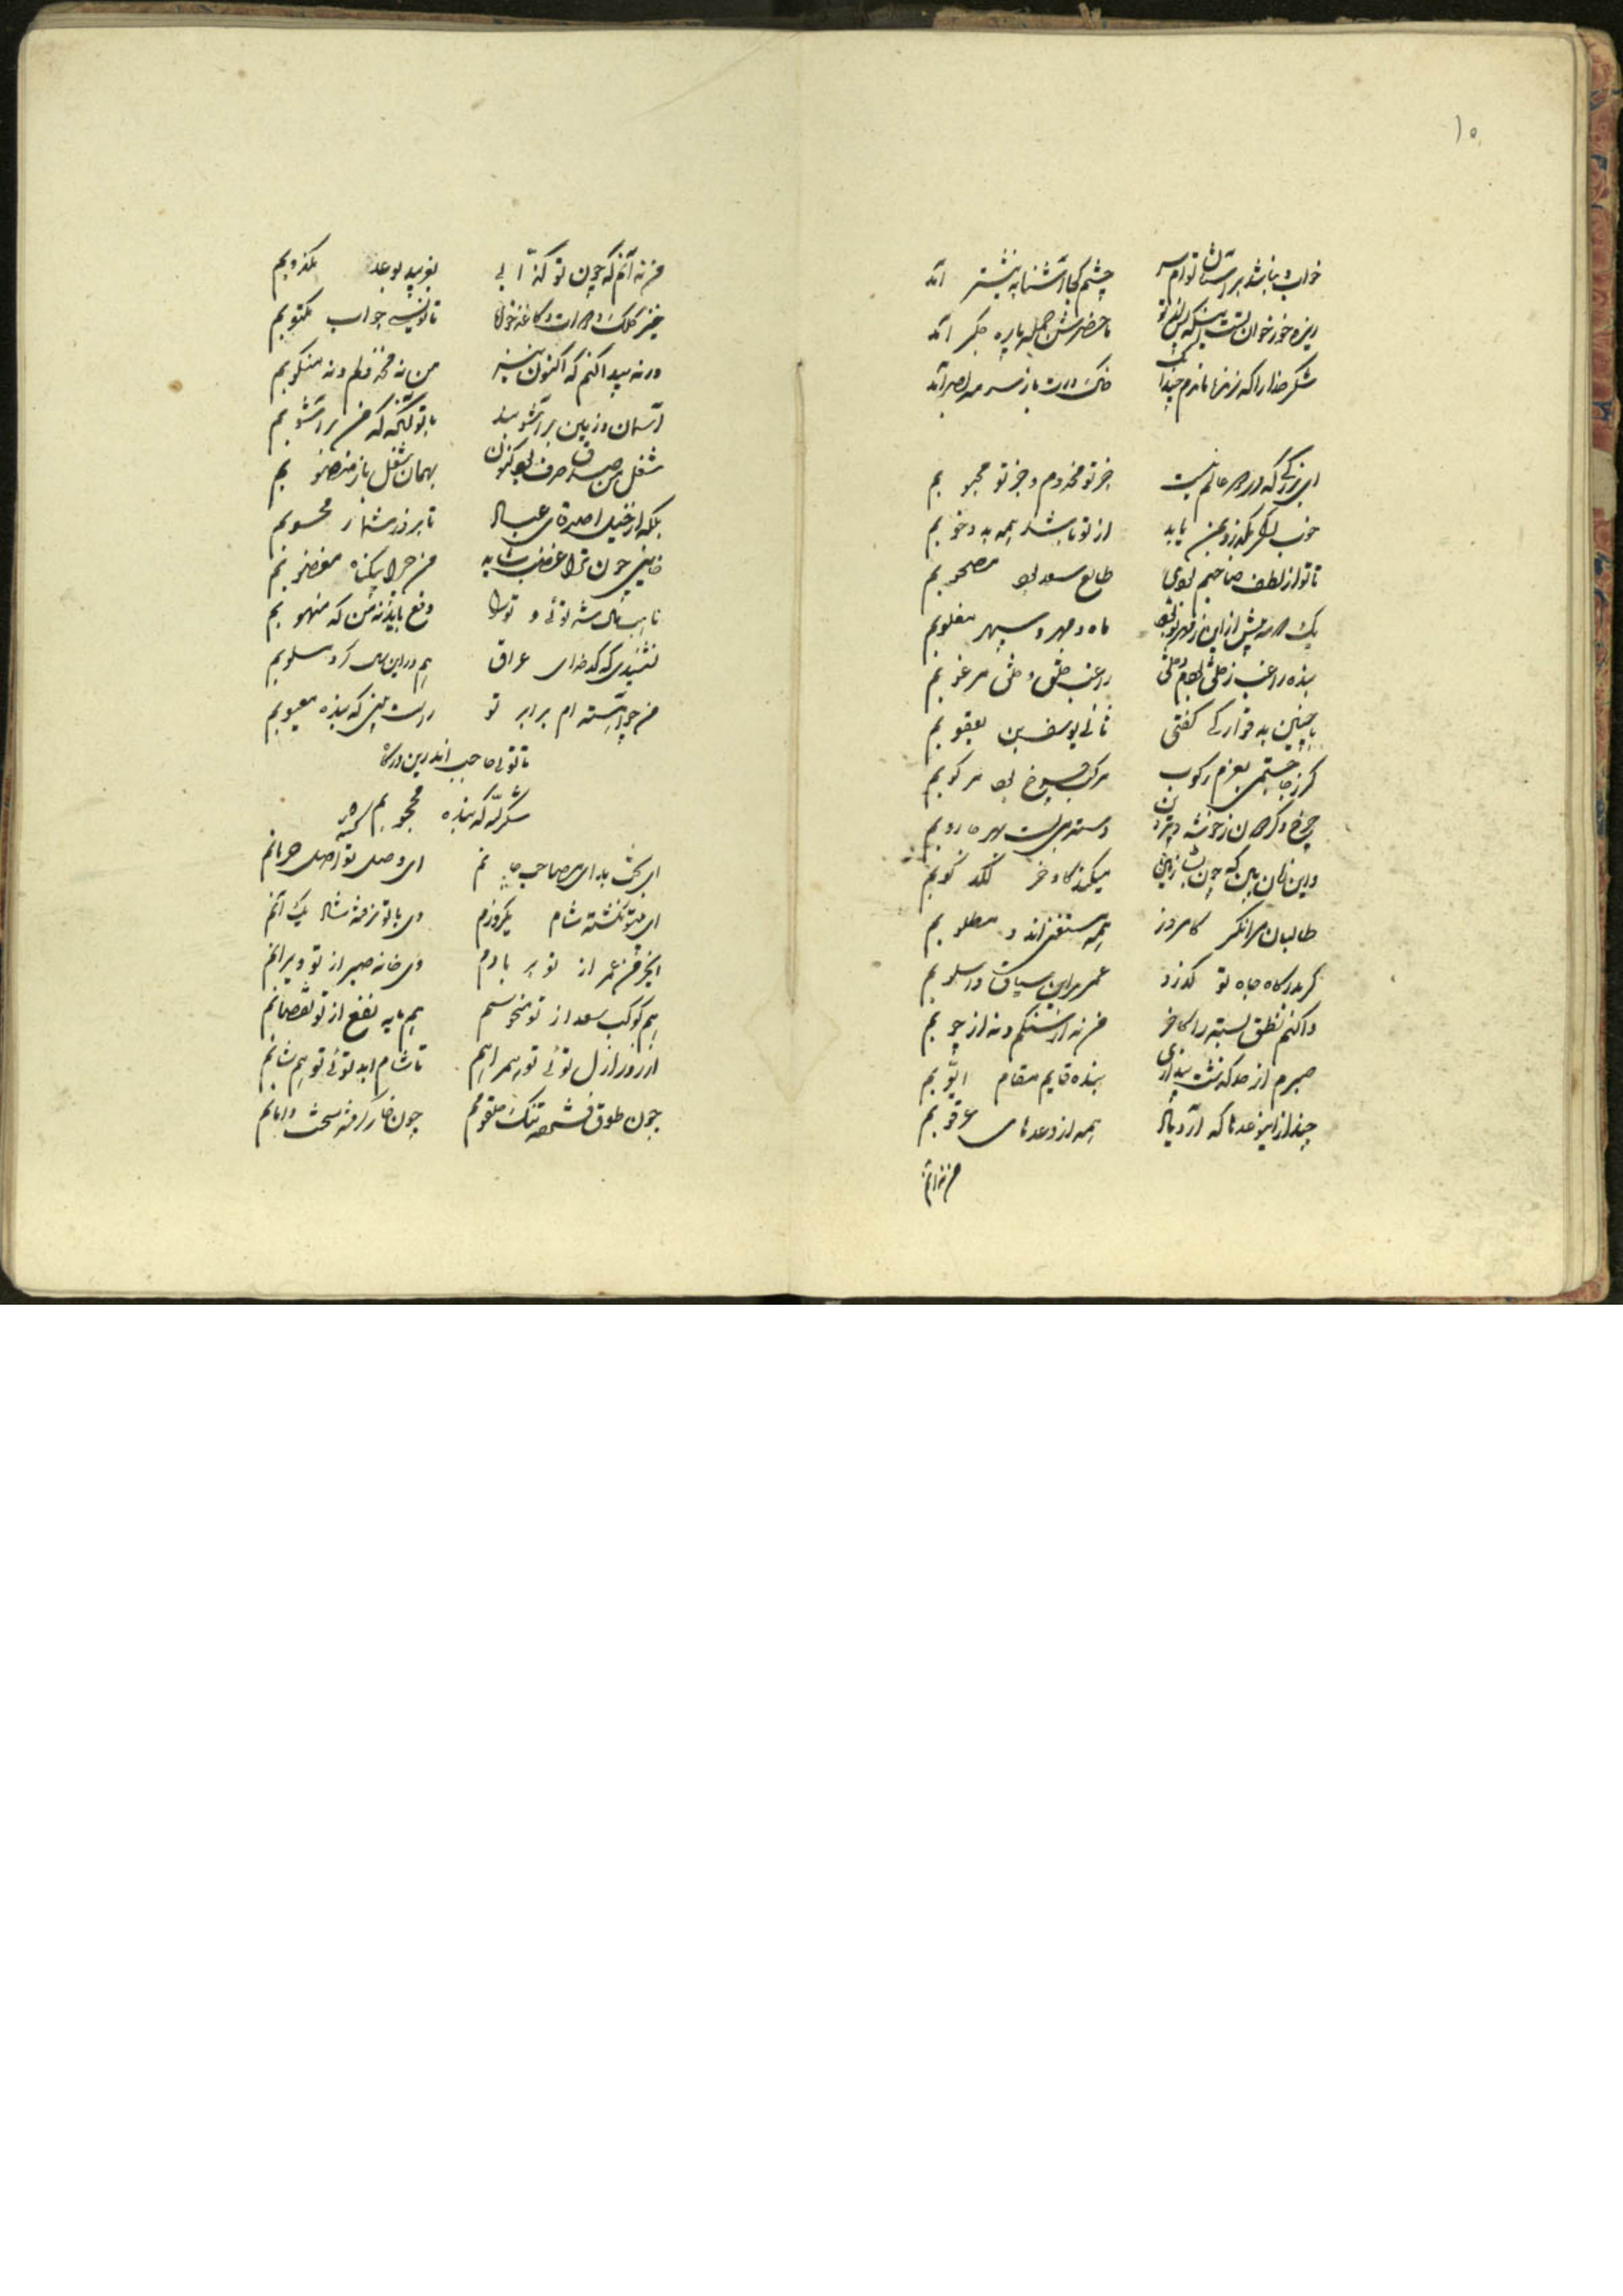 ۱۵
خواب
چشم کجا آشنا به نیشتر آمد
ریزه خور خوان
ماحضرش جمله پاره جگر آمد
شکر خدا را که زنده ماندم چندانک
خاک درت باز سرمه بصر آمد
ای بزرگی که در همه عالم نیست
جز تو مخدوم و جز تو محبوبم
خوب اگر بگذرد بمن یا بد
از تو باشد همه بد و خوبم
تا تو از لطف صاحبم بودی
طالع سعد بود مصحوبم
یک مه پیش از این ز قهر تو بود
ماه و مهر و سپهر مغلوبم
بنده راغب ز خلق بودم و خلق
راغب خلق و خلق مرغوبم
با چنین بد قوارگی گفتی
ثانی یوسف بن یعقوبم
گر ز جا جستمی بعزم رکوب
مرکب چرخ بود مرکوبم
چرخ و گردون ز خوشه پروین
دسته می بست بهر جاروبم
واین زمان بین که چون بشاخ زمین
میکند گاو و خر لگد کوبم
طالبان مرا نگر کامروز
همه مستغنی اند و مطلوبم
گر بدرگاه جاه تو گذرد
عمر براین سیاق و اسلوبم
واکنم نطق بسته را کاخر
من نه از سنگم و نه از چوبم
صبرم از حد گذشت پنداری
بنده قایم مقام ایوبم
چند از این وعدها که آرد یاد
همه از وعدهای عرقوبم
من نه آنم
من نه آنم که چون تو کذابی
بفریبد بوعد مکذوبم
خیز کلک و دوات و کاغذ خواه
تا نویسی جواب مکتوبم
ورنه پیدا کنم که اکنون نیز
من نه مخذولم و نه منکوبم
آسمان و زمین برآشوبند
با تو گر یکدم که من برآشوبم
شغل من صدق صرف بود کنون
بهمان شغل باز منصوبم
بلکه از خیل اصدقای عباد
تا بروز شمار محسوبم
خاینی چون ترا غضب شاید
من چرا بیگناه مغضوبم
ناهب مال شه توئی و ترا
دفع باید نه من که منهوبم
نشنیدی که کدخدای عراق
هم در این سال کرد مسلوبم
من چو آیینه ام برابر تو
راست بینی که بنده معیوبم
تا توئی حاجب اندرین درگاه
شکر لله که بنده محجوبم
ای بخت بد ای مصاحب جانم
ای وصل تو اصل حرمانم
ای بیتو نگشته شام یکروزم
وی با تو نرفته شاد یک آنم
ای خرمن عمر از تو بر بادم
وی خانه صبر از تو ویرانم
هم کوکب سعد از تو منحوسم
هم مایه نفع از تو نقصانم
از روز ازل توئی تو همراهم
تا شام ابد توئی تو هم شانم
چون طوق فشرده تنگ حلقومم
چون خار گرفته سخت دامانم